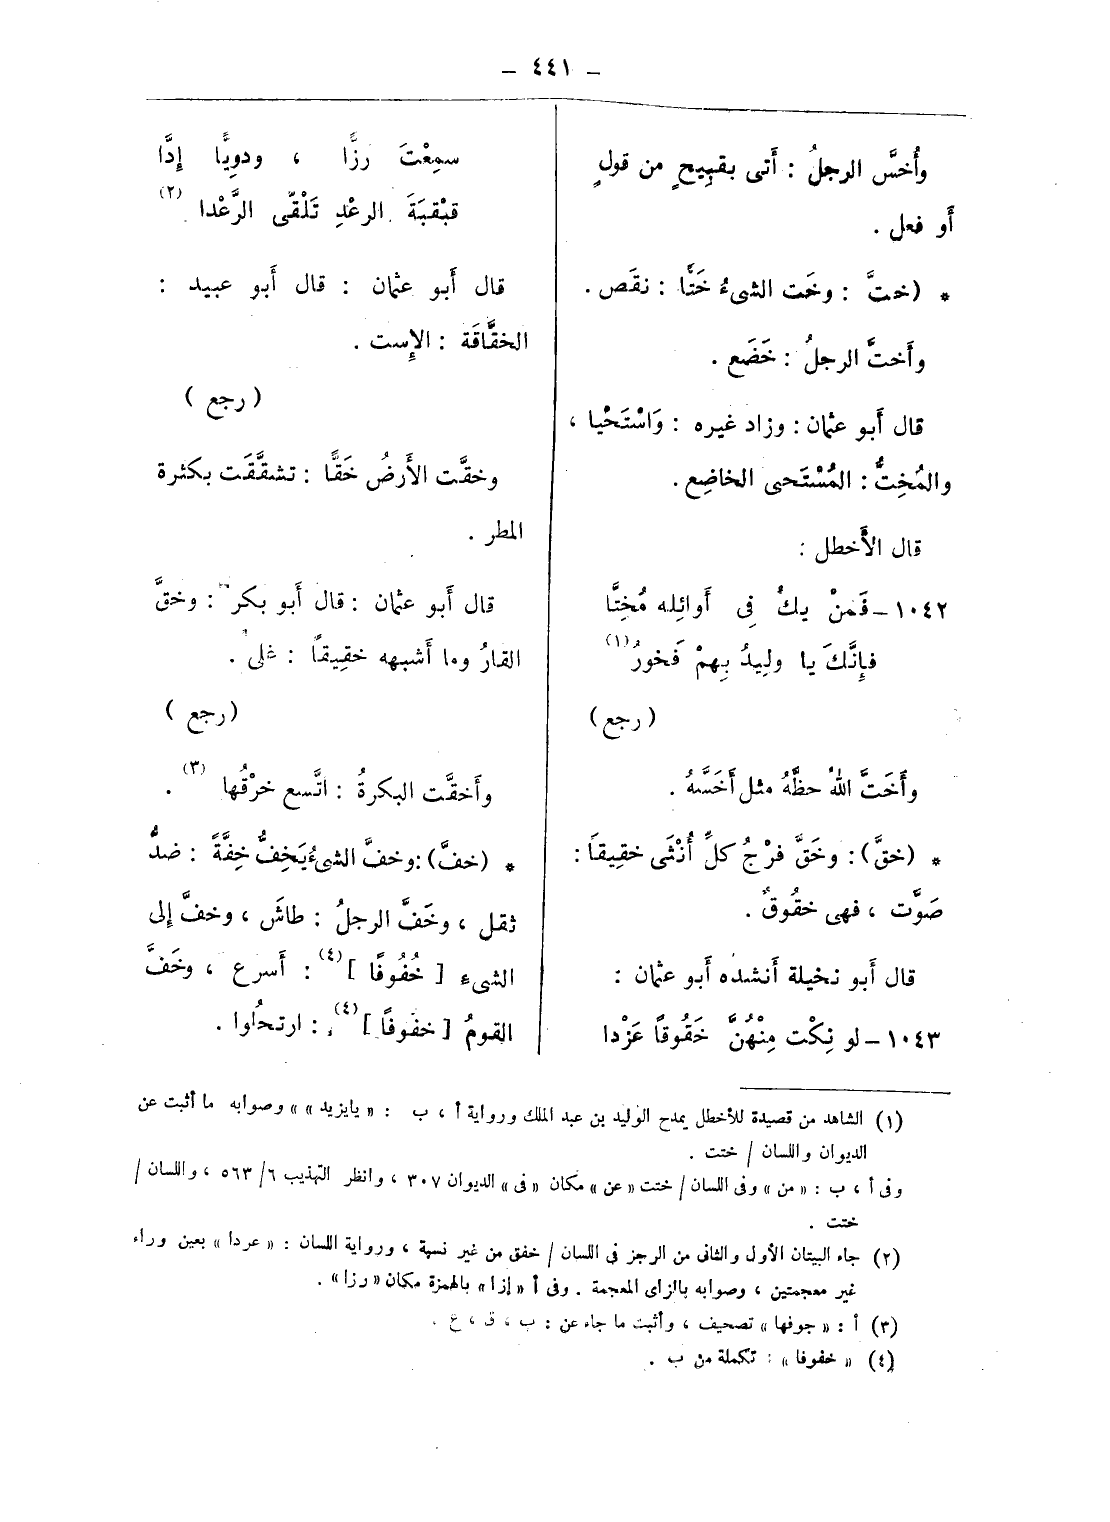 – ٤٤١ –
وأَخسَّ الرجلُ : أَتى بقبِيحٍ من قولٍ
أَو فعل .
* (ختَّ : وخَت الشىءُ خَتًّا : نقَص .
وأَختَّ الرجلُ : خَضَع .
قال أَبو عثمان : وزاد غيره : وَاسْتَحْيا ،
والمُخِتُّ : المُسْتَحى الخاضِع .
قال الأَخطل :
١٠٤٢ – فَمَنْ يكُ فِى أَوائِله مُخِتًّا
فإِنَّكَ يا ولِيدُ بِهمْ فَخورُ (١)
( رجع )
وأَخَتَّ اللهُ حظَّهُ مثل أَخَسَّهُ .
* (خقَّ) : وخَقَّ فرْجُ كلِّ أُنْثَى خقِيقًا :
صَوَّت ، فهى خقُوقٌ .
قال أَبو نخيلة أَنشده أَبو عثمان :
١٠٤٣ – لو نِكْت مِنْهُنَّ خَقُوقًا عَزْدا
سمِعْتَ رزًّا ، ودوِيًّا إِدًّا
قبْقبَةَ الرعْدِ تَلْقّى الرَّعْدا (٢)
قال أَبو عثمان : قال أَبو عبيد :
الخقَّاقَة : الإِست .
( رجع )
وخقَّت الأَرضُ خَقًّا : تشقَّقَت بكثرة
المطر .
قال أَبو عثمان : قال أَبو بكر : وخقَّ
القارُ وما أَشبهه خقِيقًا : غلى .
( رجع )
وأَخقَّت البكرةُ : اتَّسع خرْقُها (٣) .
* (خفَّ) : وخفَّ الشىءُ يَخِفُّ خِفَّةً : ضدُّ
ثقل ، وخَفَّ الرجلُ : طاشَ ، وخفَّ إِلى
الشىء [ خُفُوفًا ] (٤) : أَسرع ، وخَفَّ
القومُ [ خفُوفًا ] (٤) : ارتحلُوا .
(١) الشاهد من قصيدة للأخطل يمدح الوليد بن عبد الملك ورواية أ ، ب : « يايزيد » وصوابه ما أثبت عن
الديوان واللسان / ختت .
وفى أ ، ب : « من » وفى اللسان / ختت « عن » مكان « فى » الديوان ٣٠٧ ، وانظر التهذيب ٦/ ٥٦٣ ، واللسان /
ختت .
(٢) جاء البيتان الأول والثانى من الرجز فى اللسان / خقق من غير نسبة ، ورواية اللسان : « عردا » بعين وراء
غير معجمتين ، وصوابه بالزاى المعجمة . وفى أ « إزا » بالهمزة مكان « رزا » .
(٣) أ : « جوفها » تصحيف ، وأثبت ما جاء عن : ب ، ق ، ع .
(٤) « خفوفا » : تكملة من ب .